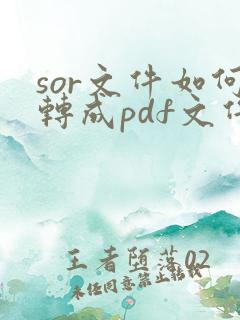 sor文件如何
轉成pdf文件
王者堕落02
未经同意禁止转载